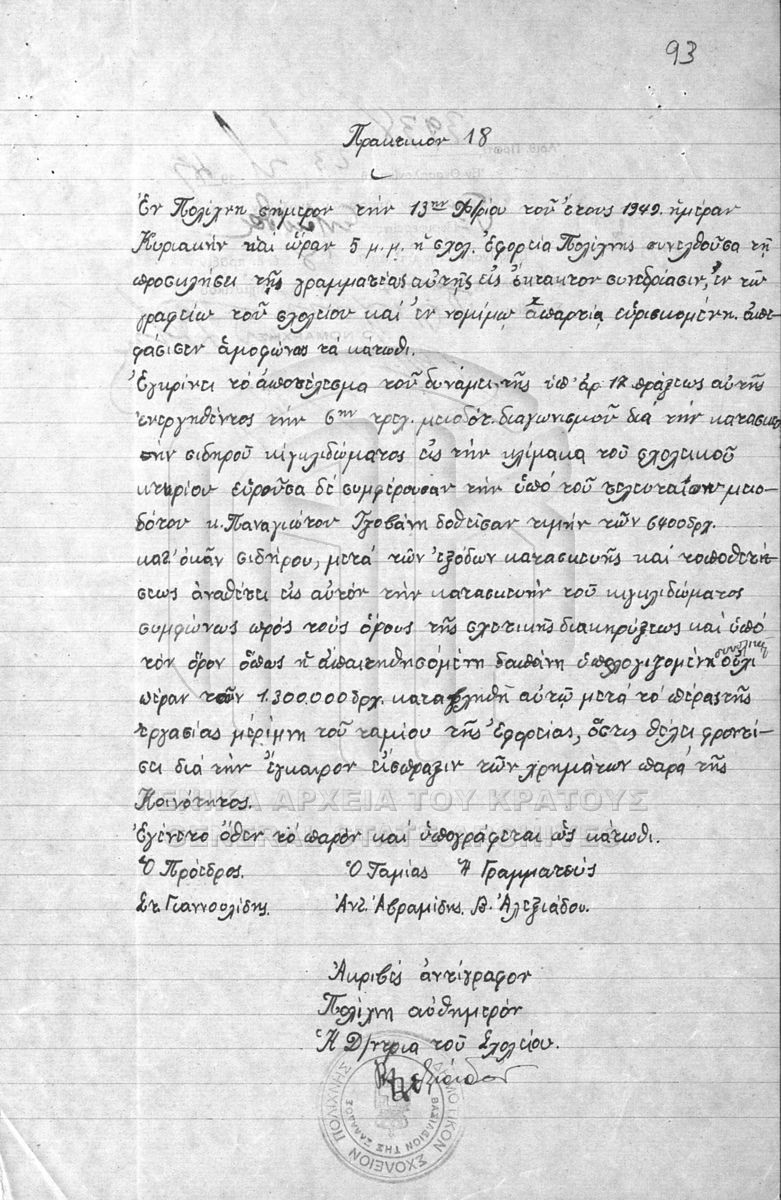 93
Πρακτικόν 18
Ἐν Πολίχνῃ σήμερον τήν 13ην Φ/ρίου τοῦ ἔτους 1949. ἡμέραν
Κυριακήν καί ὥραν 5 μ.μ. ἡ σχολ. Ἐφορεία Πολίχνης συνελθοῦσα τῇ
προσκλήσει τῆς γραμματέας αὐτῆς εἰς ἔκτακτον συνεδρίασιν, ἐν τῷ
γραφείῳ τοῦ σχολείου καί ἐν νομίμῳ ἀπαρτίᾳ εὑρισκομένη. ἀπε-
φάσισεν ὁμοφώνως τά κάτωθι.
Ἐγκρίνει τό ἀποτέλεσμα τοῦ δυνάμει τῆς ὑπ' ἀρ 12 πράξεως αὐτῆς
ἐνεργηθέντος τήν 6ην τρεχ. μειοδότ. διαγωνισμοῦ διά τήν κατασκευ
ήν σιδηροῦ κιγκλιδώματος εἰς τήν κλίμακα τοῦ σχολικοῦ
κτιρίου εὑροῦσα δέ συμφέρουσαν τήν ὑπό τοῦ τελευταίου μειο-
δότου κ. Παναγιώτου Τζοβάνη δοθεῖσαν τιμήν τῶν 5400 δρχ.
κατ' ὀκᾶν σιδήρου, μετά τῶν ἐξόδων κατασκευῆς καί τοποθετή-
σεως ἀναθέτει εἰς αὐτόν τήν κατασκευήν τοῦ κιγκλιδώματος
συμφώνως πρός τούς ὅρους τῆς σχετικῆς διακηρύξεως καί ὑπό
τόν ὅρον ὅπως ἡ ἀπαιτηθησομένη δαπάνη ὑπολογιζομένη συνολικῶς οὐχί
πέραν τῶν 1.300.000 δρχ. καταβληθῇ αὐτῷ μετά τό πέρας τῆς
ἐργασίας μερίμνῃ τοῦ ταμίου τῆς Ἐφορείας, ὅστις θέλει φροντί-
σει διά τήν ἔγκαιρον εἴσπραξιν τῶν χρημάτων παρά τῆς
Κοινότητος.
Ἐγένετο ὅθεν τό παρόν καί ὑπογράφεται ὡς κάτωθι.
Ὁ Πρόεδρος. Ὁ Ταμίας Ἡ Γραμματεύς
Στ. Γιαννουλίδης. Ἀντ. Ἀβραμίδης. Β. Ἀλεξιάδου.
Ἀκριβές ἀντίγραφον
Πολίχνη αὐθημερόν
Ἡ Δ/ντρια τοῦ Σχολείου.
ΔΗΜΟΤΙΚΟΝ ΣΧΟΛΕΙΟΝ ΠΟΛΙΧΝΗΣ
ΒΑΣΙΛΕΙΟΝ ΤΗΣ ΕΛΛΑΔΟΣ
ΓΕΝΙΚΑ ΑΡΧΕΙΑ ΤΟΥ ΚΡΑΤΟΥΣ